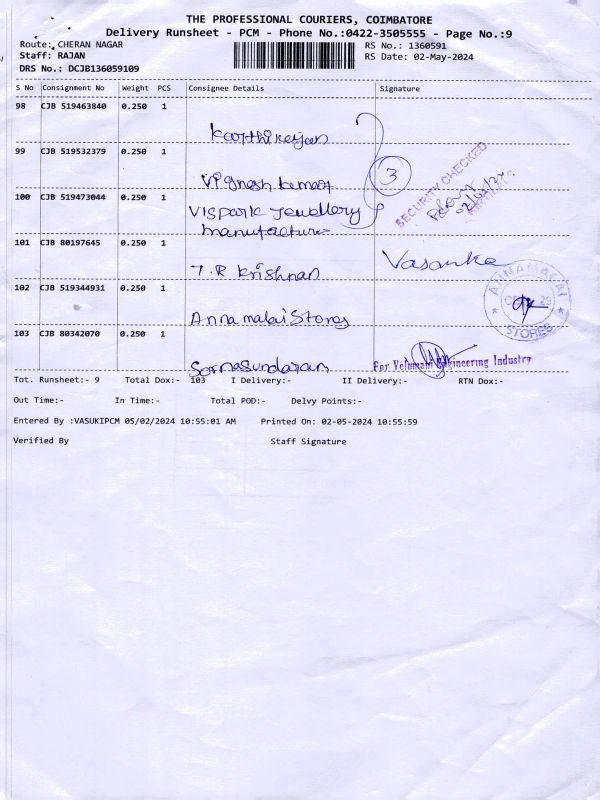 THE PROFESSIONAL COURIERS, COIMBATORE
Delivery Runsheet - PCM - Phone No.:0422-3505555 - Page No.:9
Route: CHERAN NAGAR RS No.: 1360591
Staff: RAJAN RS Date: 02-May-2024
DRS No.: DCJB136059109
S No Consignment No Weight PCS Consignee Details Signature
98 CJB 519463840 0.250 1
Karthikeyan
99 CJB 519532379 0.250 1
3
SECURITY CHECKED
Vignesh kumar
100 CJB 519473044 0.250 1
Vispark Jewellery
manufacture
101 CJB 80197645 0.250 1
Vasanka
T.R krishnan
102 CJB 519344931 0.250 1
ANNAMALAI
STORES
Annamalai Stores
103 CJB 80342070 0.250 1
For Velumani Engineering Industry
Somasundaram
Tot. Runsheet:- 9 Total Dox:- 103 I Delivery:- II Delivery:- RTN Dox:-
Out Time:- In Time:- Total POD:- Delvy Points:-
Entered By :VASUKIPCM 05/02/2024 10:55:01 AM Printed On: 02-05-2024 10:55:59
Verified By Staff Signature